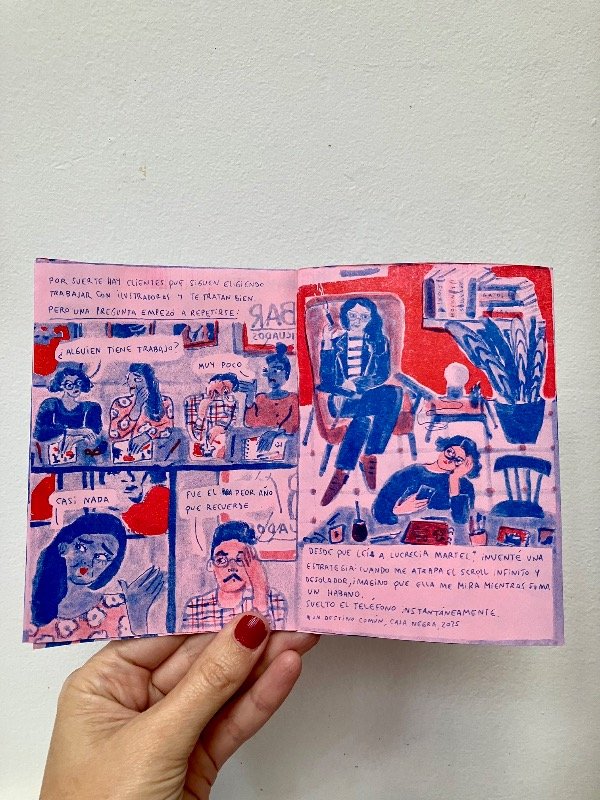 POR SUERTE HAY CLIENTES QUE SIGUEN ELIGIENDO
TRABAJAR CON ILUSTRADORAS Y TE TRATAN BIEN.
PERO UNA PREGUNTA EMPEZÓ A REPETIRSE:
BAR
¿ALGUIEN TIENE TRABAJO?
MUY POCO
CASI NADA
FUE EL PEOR AÑO
QUE RECUERDE
DESDE QUE LEÍ A LUCRECIA MARTEL* INVENTE UNA
ESTRATEGIA: CUANDO ME ATRAPA EL SCROLL INFINITO Y
DESOLADOR, IMAGINO QUE ELLA ME MIRA MIENTRAS FUMA
UN HABANO.
SUELTO EL TELÉFONO INSTANTÁNEAMENTE.
*UN DESTINO COMÚN, CAJA NEGRA, 2025